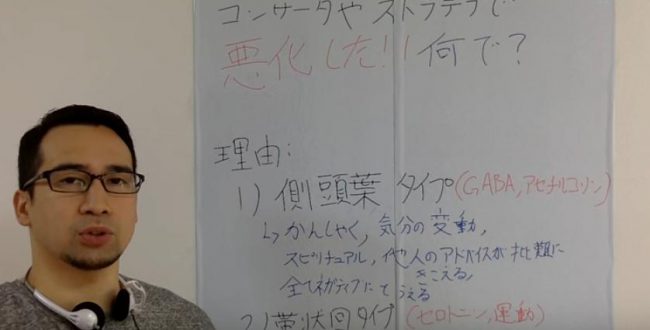 コンサータや ストラテラで
悪化した!! 何で?
理由:
1) 側頭葉 タイプ(GABA,アセチルコリン)
↳かんしゃく, 気分の変動,
スピリチュアル, 他人のアドバイスが批難に
きこえる,
全てネガティブにとらえる
2) 帯状回タイプ (セロトニン,運動)